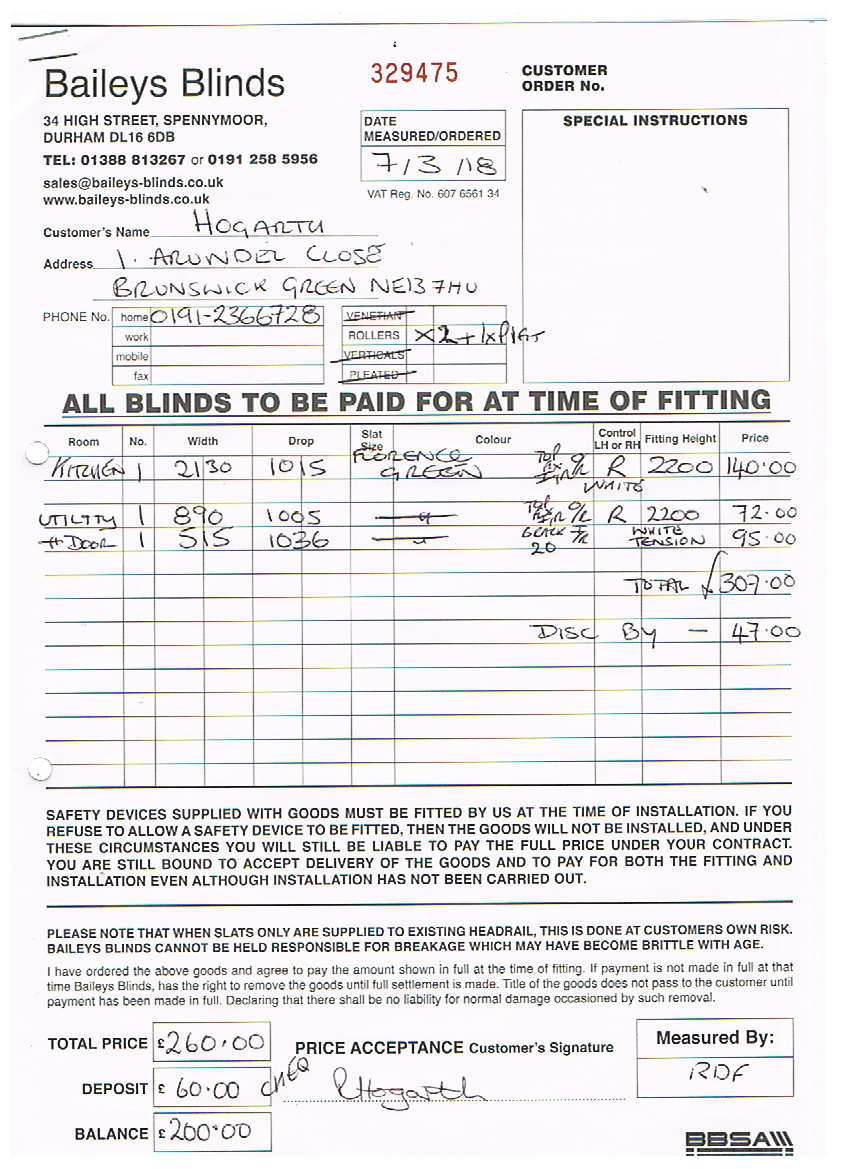 Baileys Blinds
34 HIGH STREET, SPENNYMOOR,
DURHAM DL16 6DB
TEL: 01388 813267 or 0191 258 5956
sales@baileys-blinds.co.uk
www.baileys-blinds.co.uk
329475
DATE
MEASURED/ORDERED
7/3/18
VAT Reg. No. 607 6561 34
CUSTOMER
ORDER No.
SPECIAL INSTRUCTIONS
Customer's Name HOGARTH
Address 1. ARUNDEL CLOSE
BRUNSWICK GREEN NE13 7HU
PHONE No. home 0191-2366728
work
mobile
fax
VENETIAN
ROLLERS ×2 + 1×
VERTICALS
PLEATED
ALL BLINDS TO BE PAID FOR AT TIME OF FITTING
Room No. Width Drop Slat Size Colour Control LH or RH Fitting Height Price
KITCHEN 1 2130 1015 FLORENCE GREEN O/R R WHITE 2200 140.00
UTILITY 1 890 1005 " O/R R 2200 72.00
" DOOR 1 515 1036 " 20 WHITE TENSION 95.00
TOTAL 307.00
DISC BY - 47.00
SAFETY DEVICES SUPPLIED WITH GOODS MUST BE FITTED BY US AT THE TIME OF INSTALLATION. IF YOU
REFUSE TO ALLOW A SAFETY DEVICE TO BE FITTED, THEN THE GOODS WILL NOT BE INSTALLED, AND UNDER
THESE CIRCUMSTANCES YOU WILL STILL BE LIABLE TO PAY THE FULL PRICE UNDER YOUR CONTRACT.
YOU ARE STILL BOUND TO ACCEPT DELIVERY OF THE GOODS AND TO PAY FOR BOTH THE FITTING AND
INSTALLATION EVEN ALTHOUGH INSTALLATION HAS NOT BEEN CARRIED OUT.
PLEASE NOTE THAT WHEN SLATS ONLY ARE SUPPLIED TO EXISTING HEADRAIL, THIS IS DONE AT CUSTOMERS OWN RISK.
BAILEYS BLINDS CANNOT BE HELD RESPONSIBLE FOR BREAKAGE WHICH MAY HAVE BECOME BRITTLE WITH AGE.
I have ordered the above goods and agree to pay the amount shown in full at the time of fitting. If payment is not made in full at that
time Baileys Blinds, has the right to remove the goods until full settlement is made. Title of the goods does not pass to the customer until
payment has been made in full. Declaring that there shall be no liability for normal damage occasioned by such removal.
TOTAL PRICE £260.00
DEPOSIT £60.00 CHEQ
BALANCE £200.00
PRICE ACCEPTANCE Customer's Signature
R Hogarth
Measured By:
RDF
BBSA